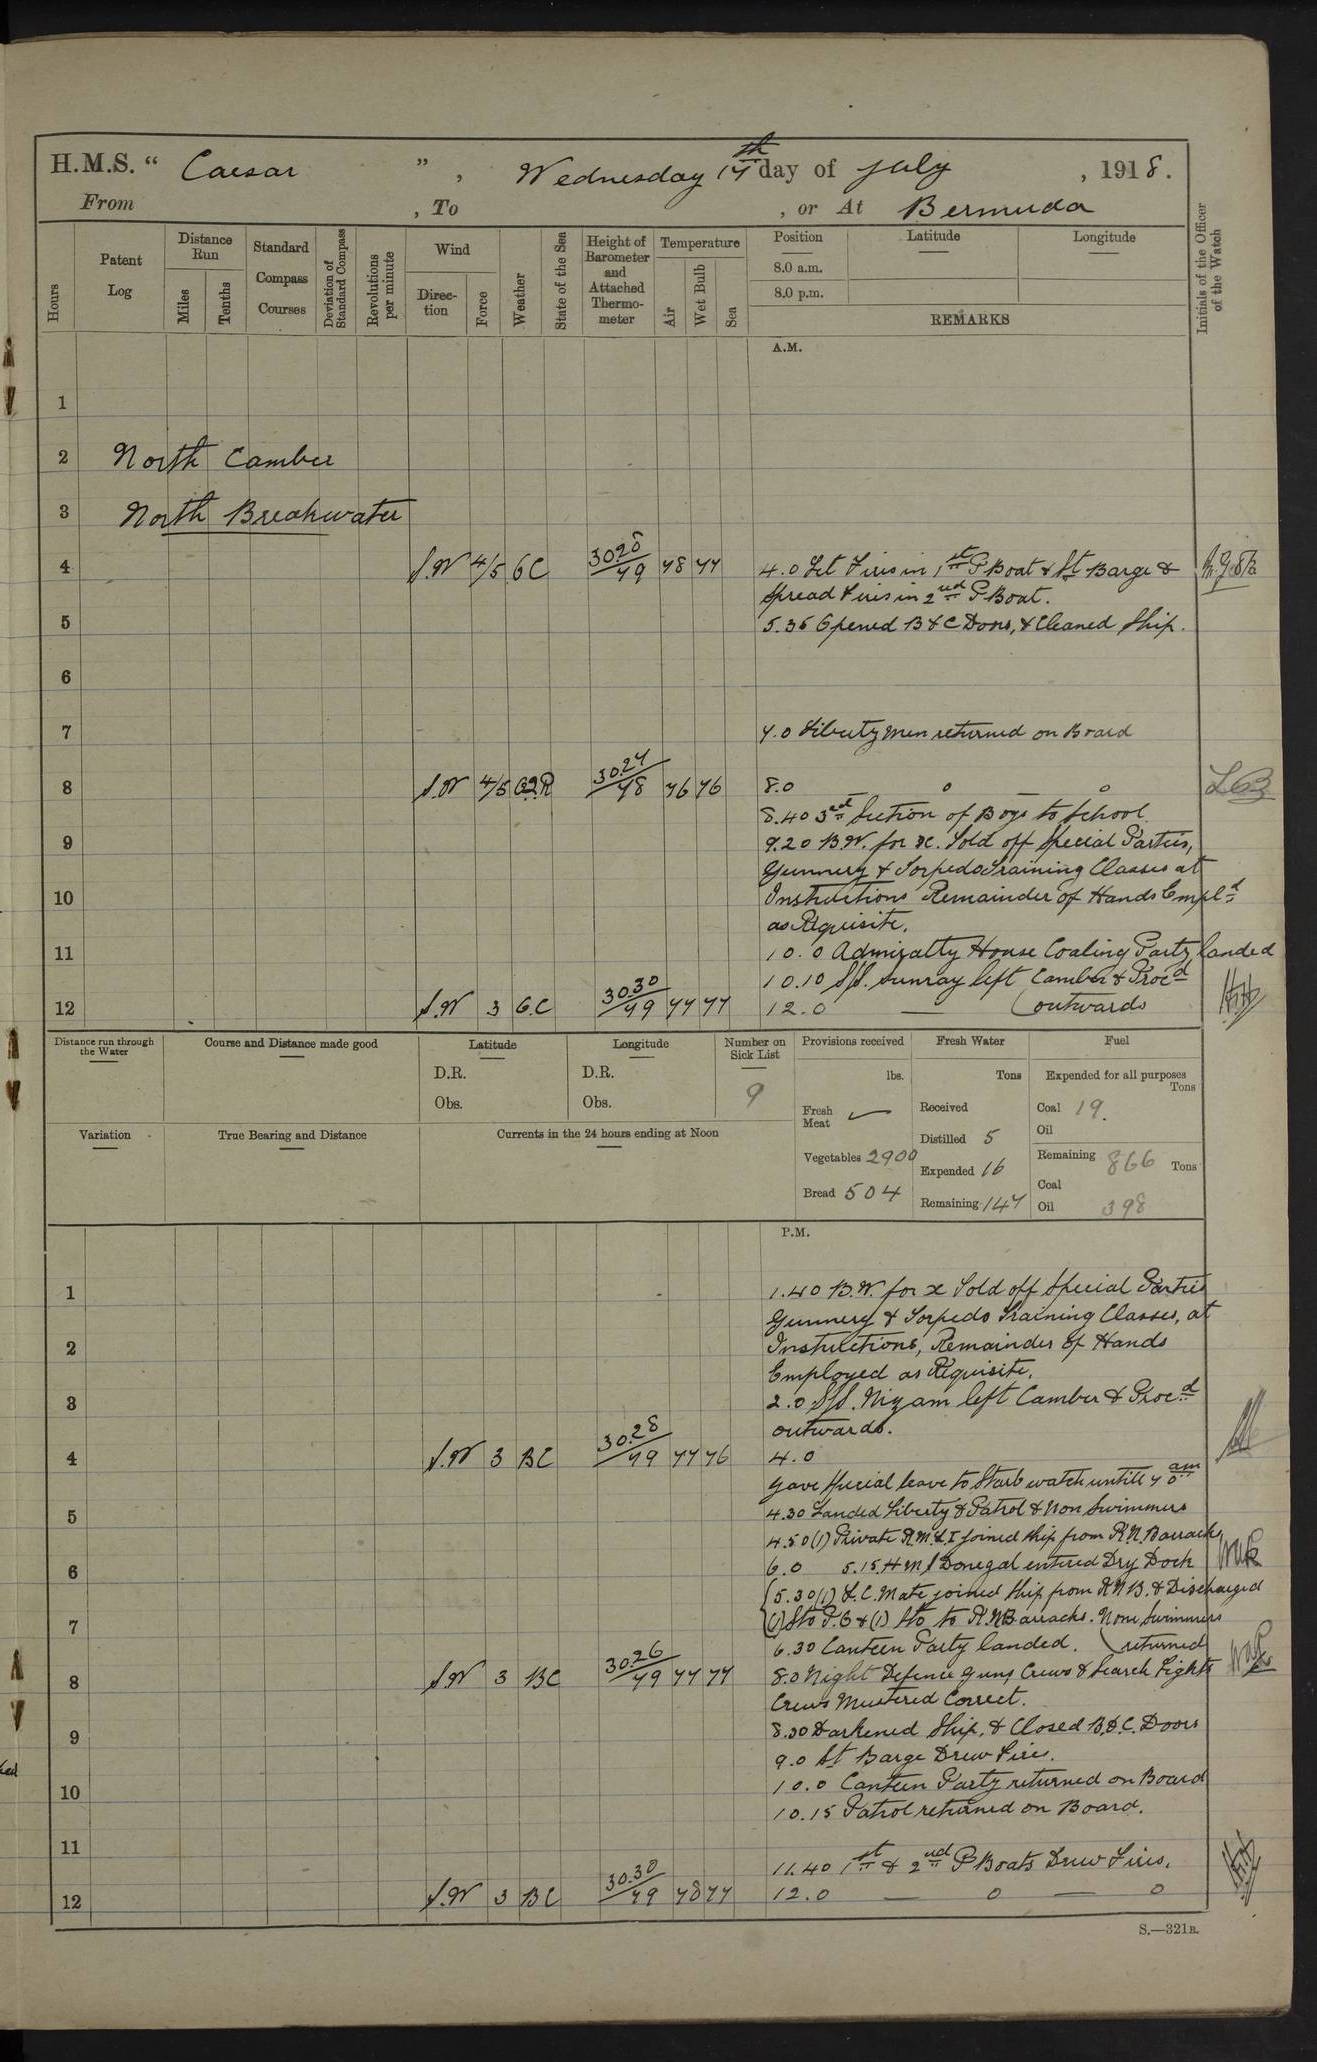 H.M.S. “ Caesar ” , Wednesday 17th day of July , 1918.
From , To , or At Bermuda
Hours
Patent Log
Distance Run
Miles
Tenths
Standard Compass Courses
Deviation of Standard Compass
Revolutions per minute
Wind
Direction
Force
Weather
State of the Sea
Height of Barometer and Attached Thermometer
Temperature
Air
Wet Bulb
Sea
Position
8.0 a.m.
8.0 p.m.
Latitude
Longitude
REMARKS
Initials of the Officer of the Watch
A.M.
1
2 North Camber
3 North Breakwater
4 S.W 4/5 GC 30.28/79 78 77 4.0 Lit Fires in 1st P Boat & St Barge &
Spread Fires in 2nd P Boat.
5 5.35 Opened B & C Doors, & Cleaned Ship.
6
7 7.0 Liberty Men returned on Board
8 S.W 4/5 G2R 30.27/78 76 76 8.0 — o — o
8.40 3rd Section of Boys to School
9 9.20 B.W. for xc. Told off Special Parties,
Gunnery & Torpedo Training Classes at
10 Instructions Remainder of Hands Empld
as Requisite.
11 10.0 Admiralty House Coaling Party landed
10.10 S/S. Sunray left Camber & Procd
12 S.W 3 GC 30.30/79 77 77 12.0 — (outwards
Distance run through the Water
Course and Distance made good
Latitude
D.R.
Obs.
Longitude
D.R.
Obs.
Number on Sick List
9
Provisions received
lbs.
Fresh Meat
Vegetables 2900
Bread 504
Fresh Water
Tons
Received
Distilled 5
Expended 16
Remaining 147
Fuel
Expended for all purposes
Tons
Coal 19.
Oil
Remaining 866 Tons
Coal
Oil 398
Variation
True Bearing and Distance
Currents in the 24 hours ending at Noon
P.M.
1 1.40 B.W. for x Told off Special Parties
Gunnery & Torpedo Training Classes, at
2 Instructions, Remainder of Hands
Employed as Requisite.
3 2.0 S/S. Nizam left Camber & Procd
outwards.
4 S.W 3 BC 30.28/79 77 76 4.0
Gave Special leave to Starb watch untill 7.0 am
5 4.30 Landed Liberty & Patrol & Non Swimmers
4.50 (1) Private R.M.L.I joined Ship from R.N. Barracks
6 6.0 5.15 H M S Donegal entered Dry Dock
(5.30 (1) L.C. Mate joined Ship from R N B. & Discharged
7 (1) Sto P.O & (1) Sto to R.N Barracks. Non Swimmers
6.30 Canteen Party landed. (returned
8 S.W 3 BC 30.26/79 77 77 8.0 Night Defence Guns Crews & Search Lights
Crews Mustered Correct.
9 8.30 Darkened Ship, & Closed B.&.C. Doors
9.0 St Barge Drew Fires.
10 10.0 Canteen Party returned on Board
10.15 Patrol returned on Board.
11 11.40 1st & 2nd P Boats Drew Fires.
12 S.W 3 BC 30.30/79 78 77 12.0 — o — o
S.—321B.